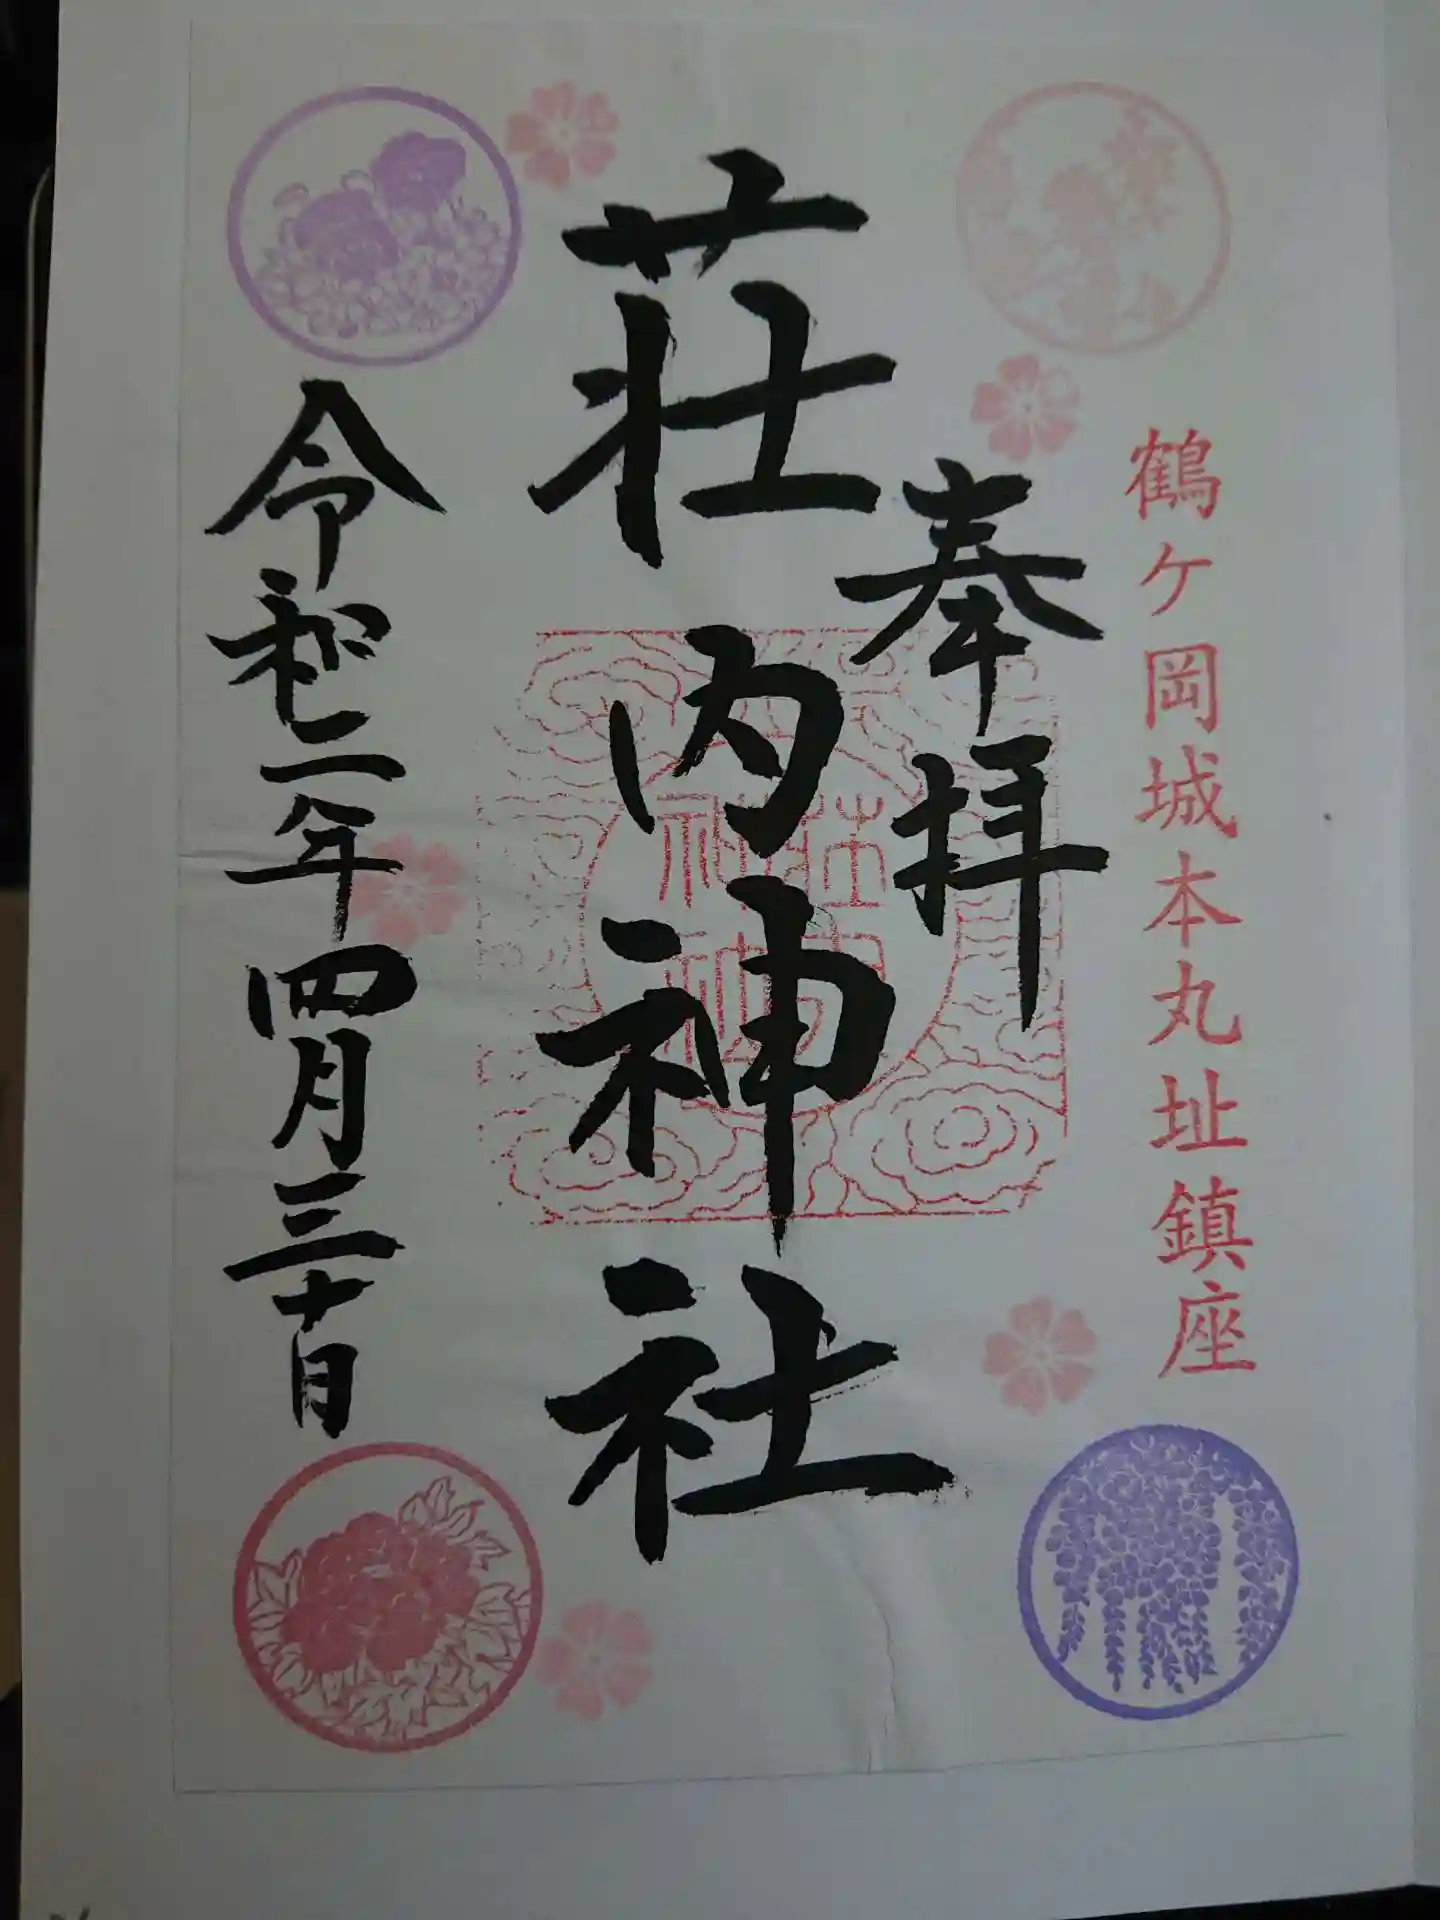 鶴ケ岡城本丸址鎮座
奉拝
荘内神社
令和二年四月三十日
荘内
神社